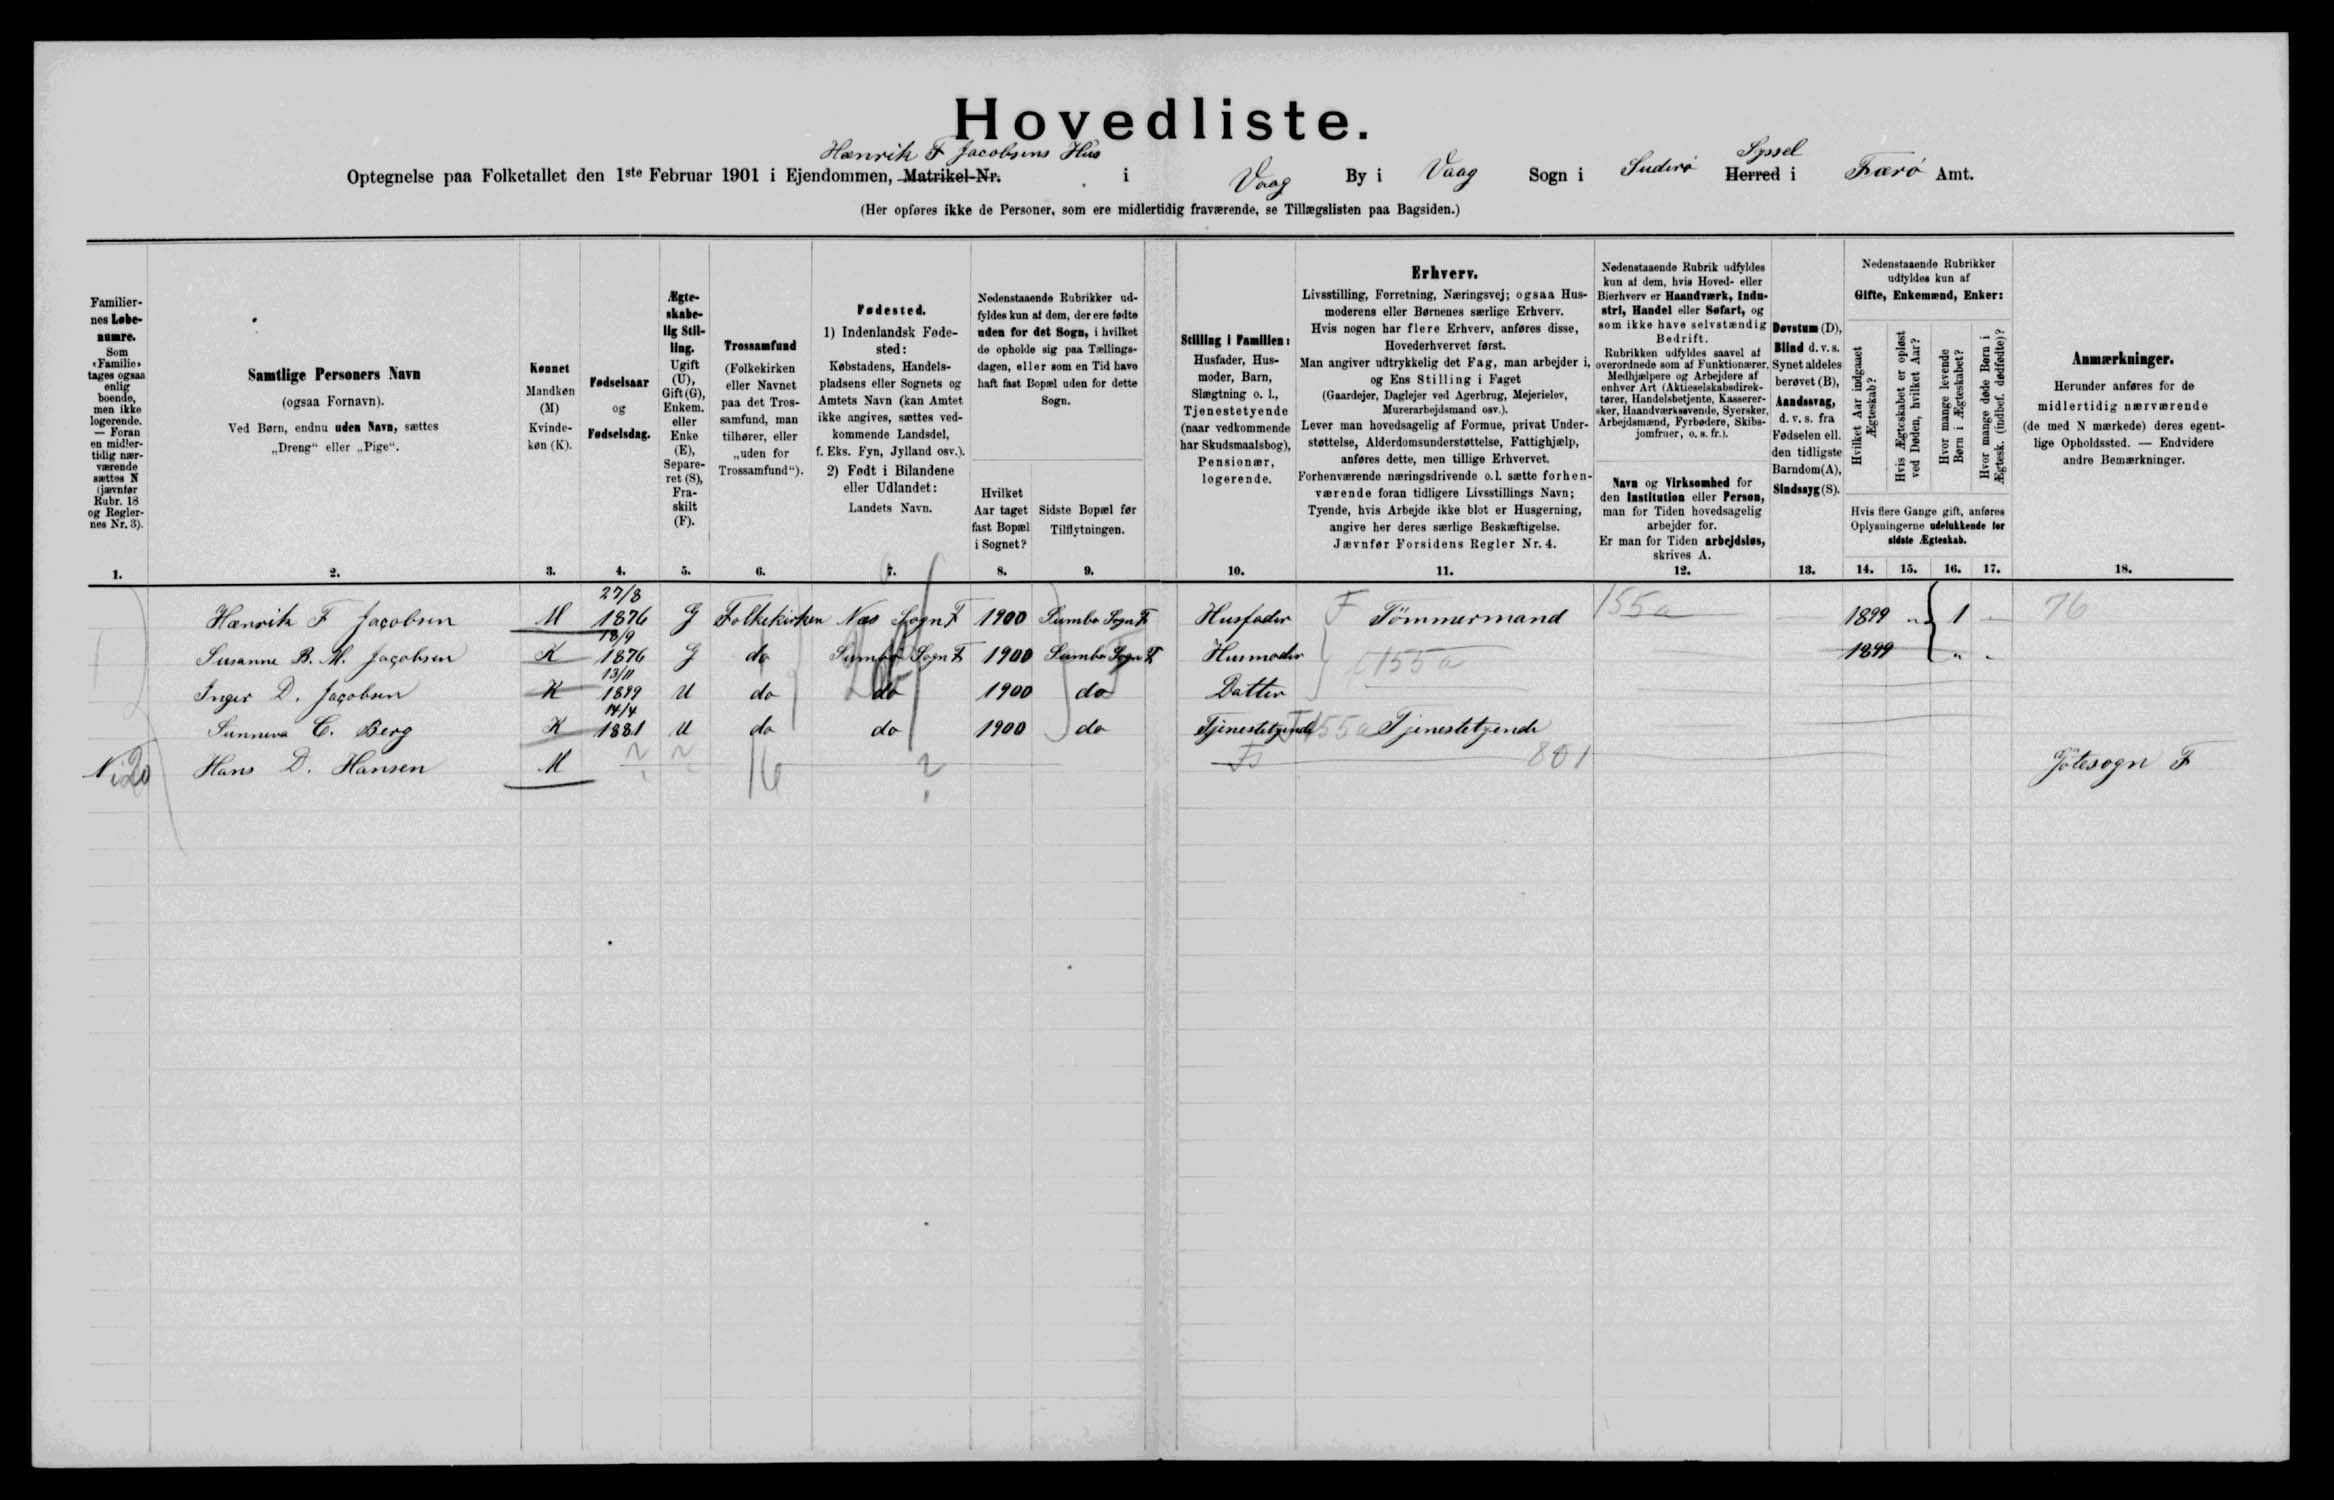 Hovedliste.
Hænrik F Jacobsens Hus
Optegnelse paa Folketallet den 1ste Februar 1901 i Ejendommen, Matrikel-Nr. i Vaag By i Vaag Sogn i Suderø Syssel Herred i Færø Amt.
(Her opføres ikke de Personer, som ere midlertidig fraværende, se Tillægslisten paa Bagsiden.)
Familiernes Løbenumre.
Som «Familie» tages ogsaa enlig boende, men ikke logerende. — Foran en midlertidig nærværende sættes N (jævnfør Rubr. 18 og Reglernes Nr. 3).
Samtlige Personers Navn
(ogsaa Fornavn).
Ved Børn, endnu uden Navn, sættes
„Dreng“ eller „Pige“.
Kønnet
Mandkøn (M)
Kvindekøn (K).
Fødselsaar
og
Fødselsdag.
Ægteskabelig Stilling.
Ugift (U), Gift (G), Enkem. eller Enke (E), Separeret (S), Fraskilt (F).
Trossamfund
(Folkekirken eller Navnet paa det Trossamfund, man tilhører, eller „uden for Trossamfund“).
Fødested.
1) Indenlandsk Fødested:
Købstadens, Handelspladsens eller Sognets og Amtets Navn (kan Amtet ikke angives, sættes vedkommende Landsdel, f. Eks. Fyn, Jylland osv.).
2) Født i Bilandene eller Udlandet:
Landets Navn.
Nedenstaaende Rubrikker udfyldes kun af dem, der ere fødte uden for det Sogn, i hvilket de opholde sig paa Tællingsdagen, eller som en Tid have haft fast Bopæl uden for dette Sogn.
Hvilket Aar taget fast Bopæl i Sognet?
Sidste Bopæl før Tilflytningen.
Stilling i Familien:
Husfader, Husmoder, Barn, Slægtning o. l., Tjenestetyende (naar vedkommende har Skudsmaalsbog), Pensionær, logerende.
Erhverv.
Livsstilling, Forretning, Næringsvej; ogsaa Husmoderens eller Børnenes særlige Erhverv.
Hvis nogen har flere Erhverv, anføres disse, Hovederhvervet først.
Man angiver udtrykkelig det Fag, man arbejder i, og Ens Stilling i Faget
(Gaardejer, Daglejer ved Agerbrug, Mejerielev, Murerarbejdsmand osv.).
Lever man hovedsagelig af Formue, privat Understøttelse, Alderdomsunderstøttelse, Fattighjælp, anføres dette, men tillige Erhvervet.
Forhenværende næringsdrivende o.l. sætte forhenværende foran tidligere Livsstillings Navn;
Tyende, hvis Arbejde ikke blot er Husgerning, angive her deres særlige Beskæftigelse.
Jævnfør Forsidens Regler Nr. 4.
Nedenstaaende Rubrik udfyldes kun af dem, hvis Hoved- eller Bierhverv er Haandværk, Industri, Handel eller Søfart, og som ikke have selvstændig Bedrift.
Rubrikken udfyldes saavel af overordnede som af Funktionærer, Medhjælpere og Arbejdere af enhver Art (Aktieselskabsdirektører, Handelsbetjente, Kasserersker, Haandværkssvende, Syersker, Arbejdsmænd, Fyrbødere, Skibsjomfruer, o. s. fr.).
Navn og Virksomhed for den Institution eller Person, man for Tiden hovedsagelig arbejder for.
Er man for Tiden arbejdsløs, skrives A.
Døvstum (D), Blind d. v. s. Synet aldeles berøvet (B), Aandssvag, d. v. s. fra Fødselen ell. den tidligste Barndom (A), Sindssyg (S).
Nedenstaaende Rubrikker udfyldes kun af
Gifte, Enkemænd, Enker:
Hvilket Aar indgaaet Ægteskab?
Hvis Ægteskabet er opløst ved Døden, hvilket Aar?
Hvor mange levende Børn i Ægteskabet?
Hvor mange døde Børn i Ægtesk. (indbef. dødfødte)?
Hvis flere Gange gift, anføres Oplysningerne udelukkende for sidste Ægteskab.
Anmærkninger.
Herunder anføres for de midlertidig nærværende (de med N mærkede) deres egentlige Opholdssted. — Endvidere andre Bemærkninger.
1. 2. 3. 4. 5. 6. 7. 8. 9. 10. 11. 12. 13. 14. 15. 16. 17. 18.
Hænrik F Jacobsen M 27/8 1876 G Folkekirken Næs Sogn F 1900 Sumbø Sogn F Husfader F Tömmermand 155a 1899 " 1 - 76
Susanne B. M. Jacobsen K 18/9 1876 G do Sumbø Sogn F 1900 Sumbø Sogn F Husmoder 155a 1899 " "
Inger D. Jacobsen K 13/11 1899 U do do 1900 do Datter
Sunneva C. Berg K 14/4 1881 U do do 1900 do Tjenestetyende 155a Tjenestetyende
N Hans D. Hansen M ? ? ? 801 Götesogn F